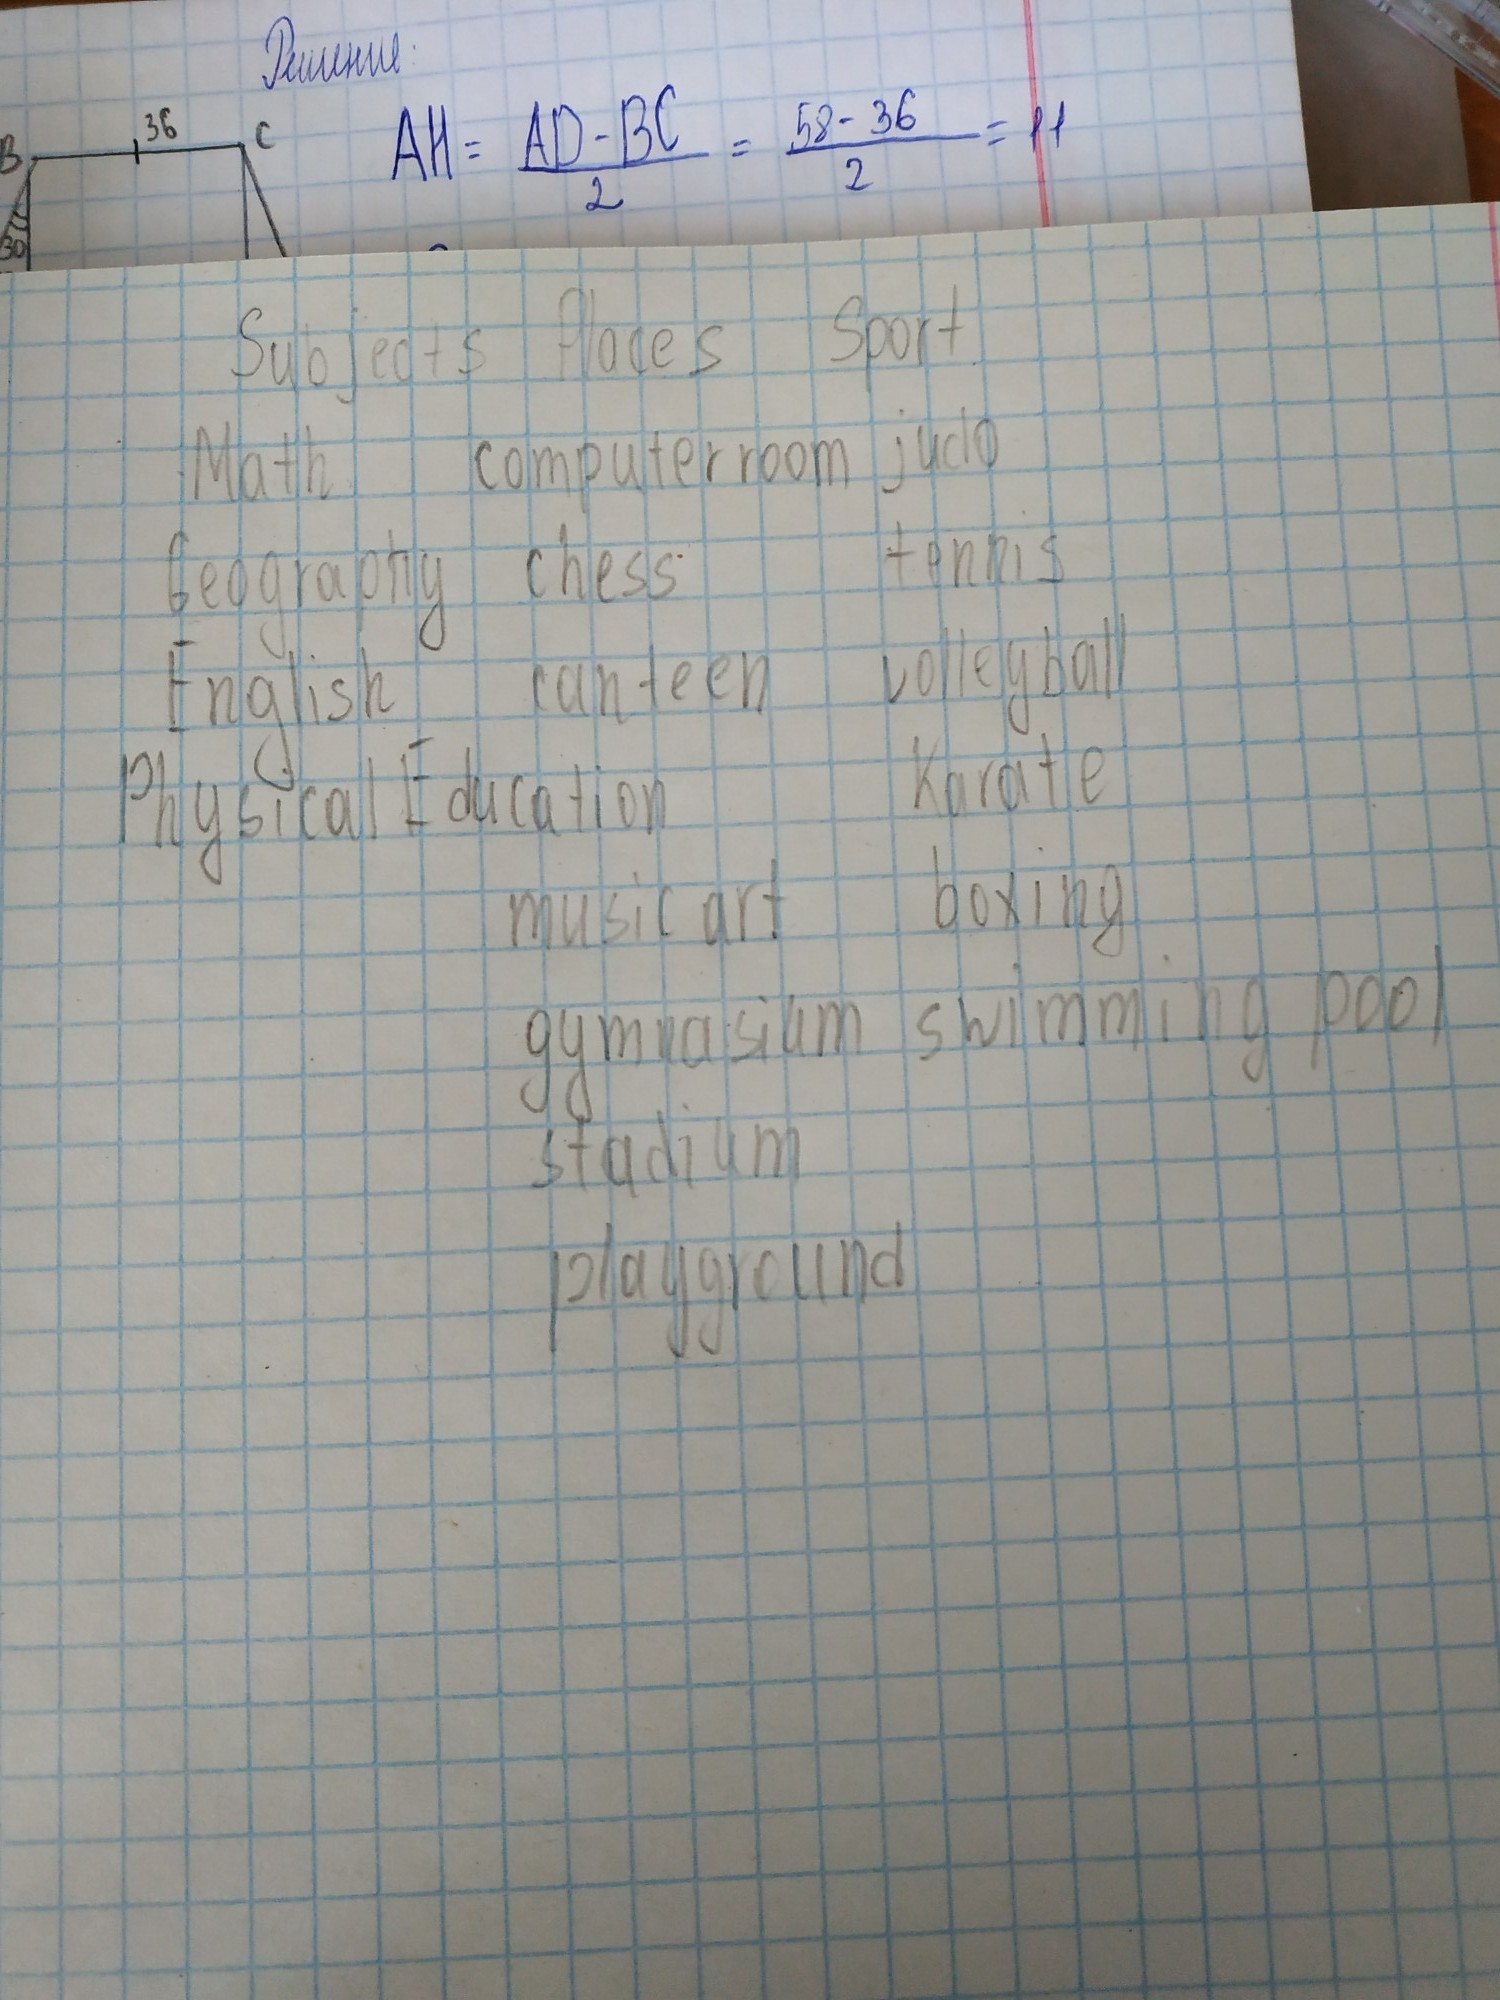 Решение:
B 36 C
AH = AD - BC / 2 = 58 - 36 / 2 = 11
30
Subjects Places Sport
Math computer room judo
Geography chess tennis
English canteen volleyball
Physical Education Karate
music art boxing
gymnasium swimming pool
stadium
playground